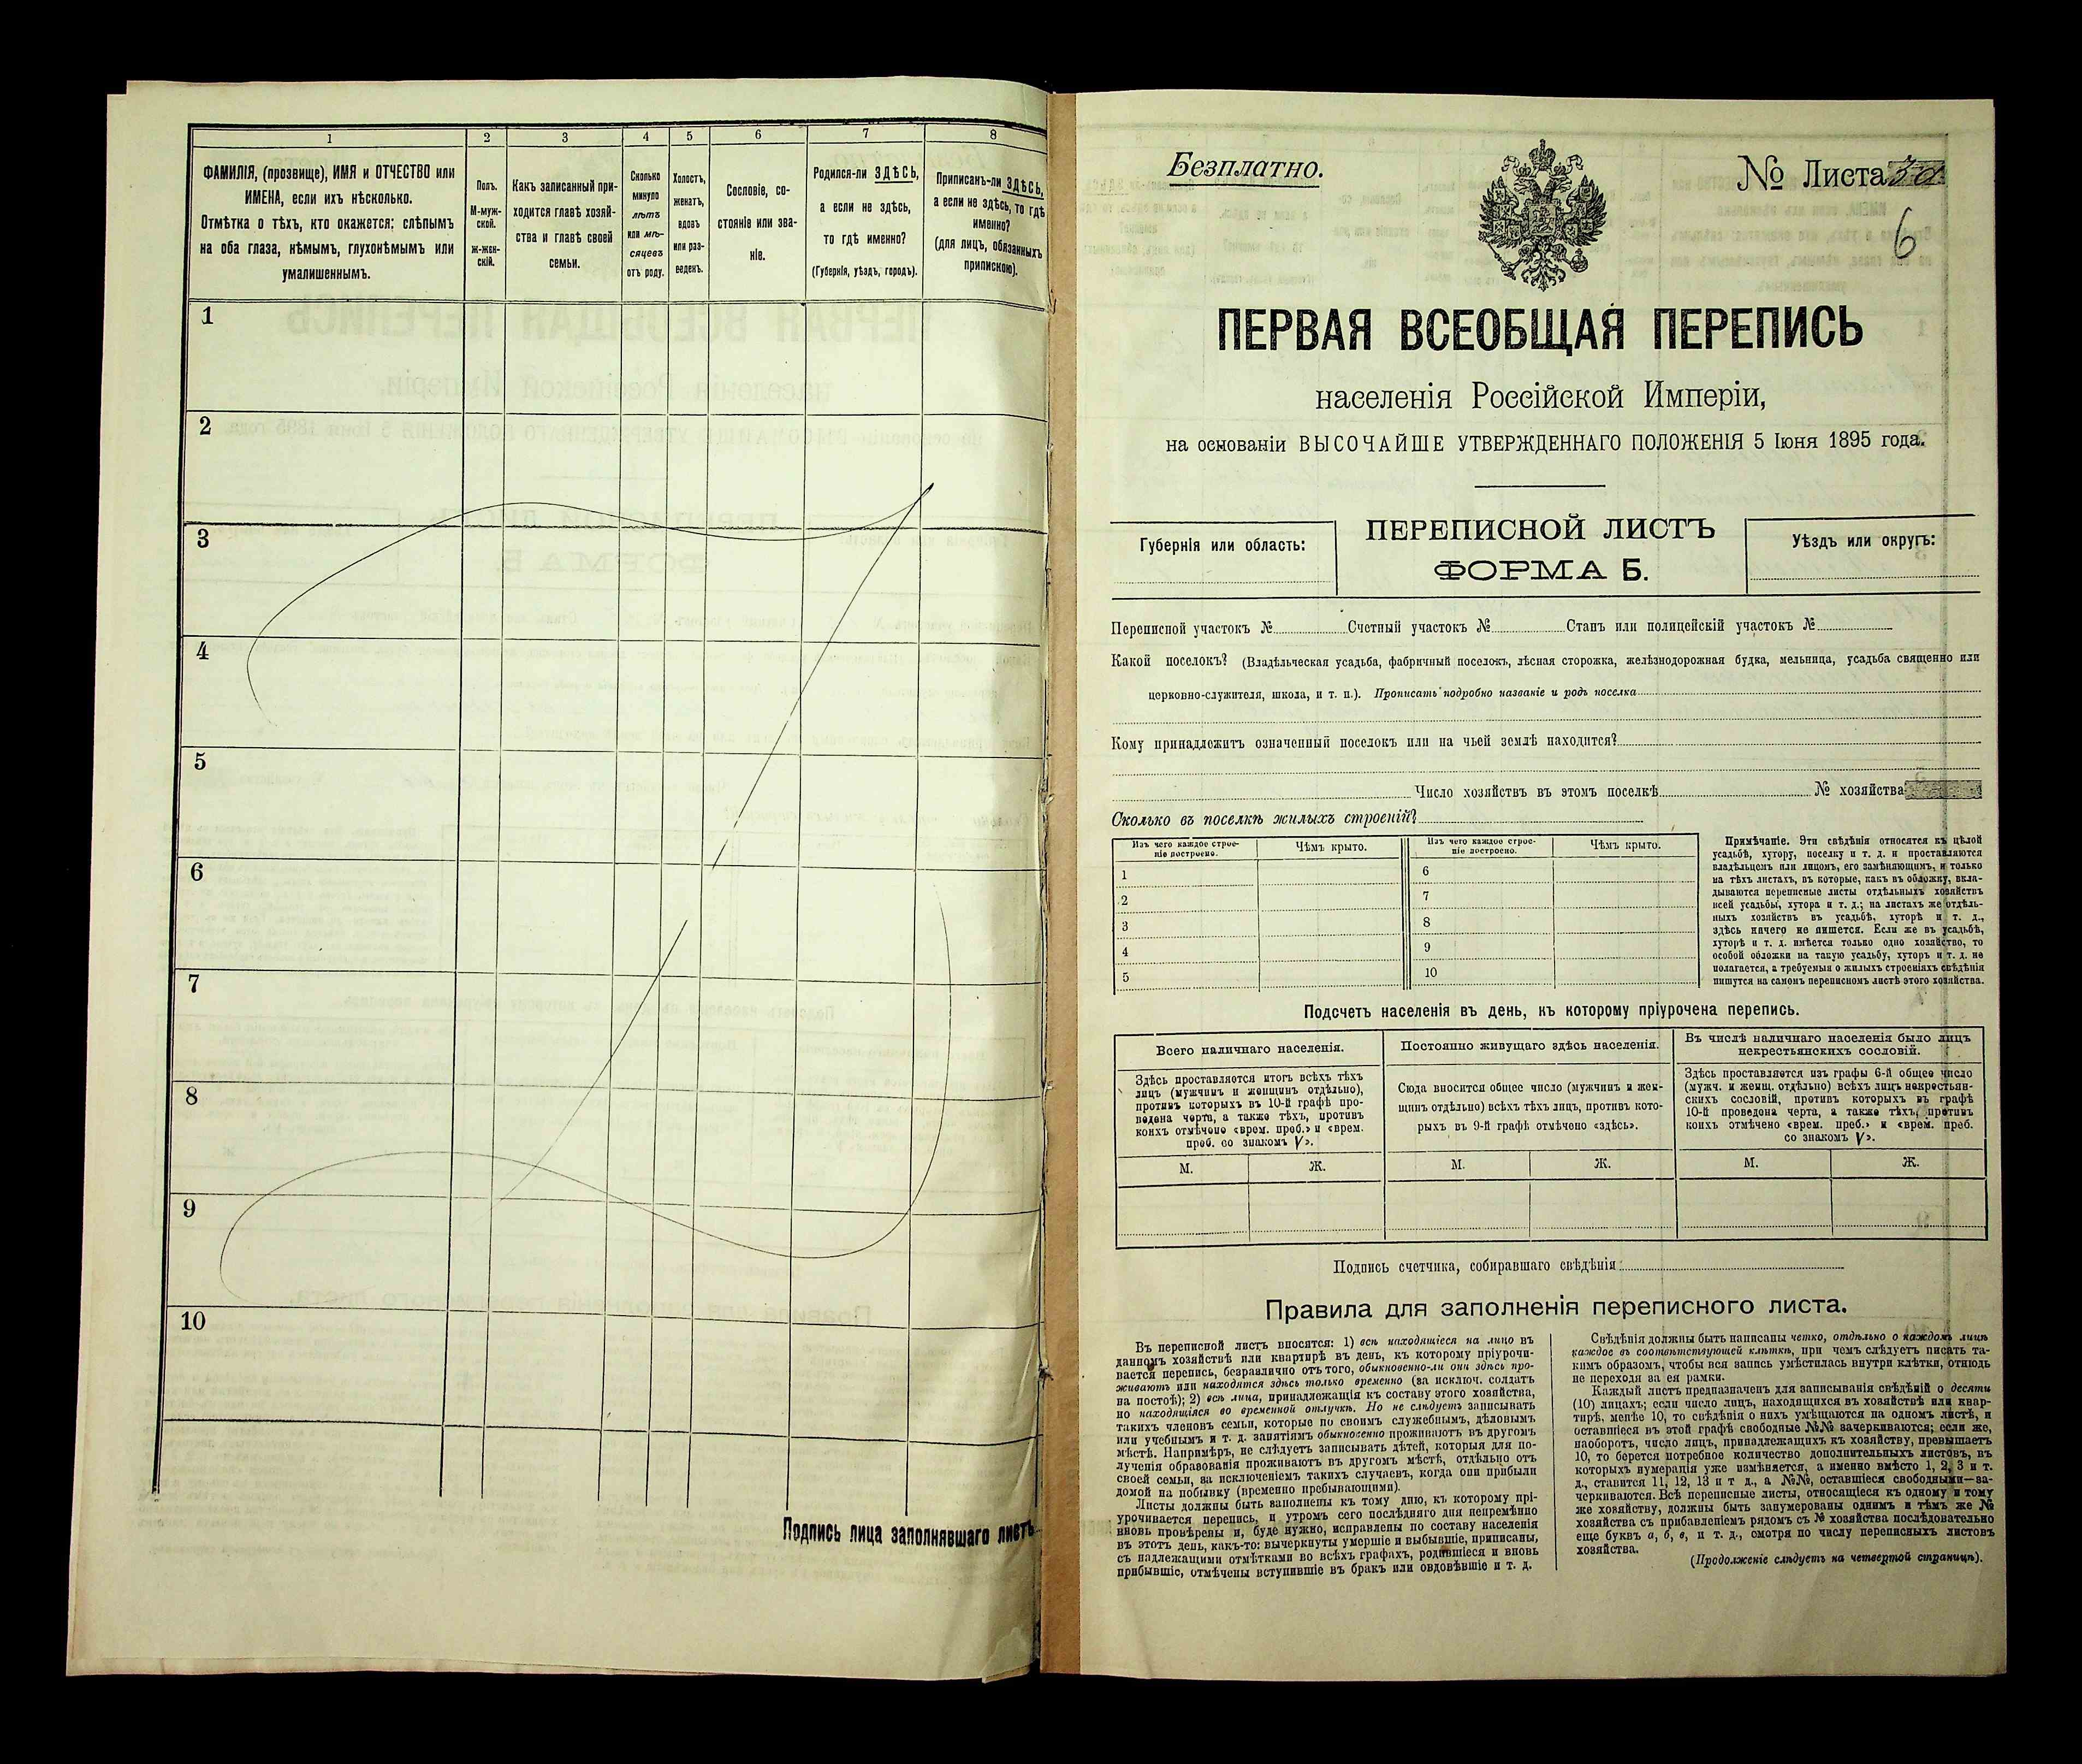 1 2 3 4 5 6 7 8
ФАМИЛІЯ, (прозвище), ИМЯ и ОТЧЕСТВО или
ИМЕНА, если ихъ нѣсколько.
Отмѣтка о тѣхъ, кто окажется: слѣпымъ
на оба глаза, нѣмымъ, глухонѣмымъ или
умалишеннымъ.
Полъ.
М-муж-
ской.
ж-жен-
скій.
Какъ записанный при-
ходится главѣ хозяй-
ства и главѣ своей
семьи.
Сколько
минуло
лѣтъ
или мѣ-
сяцевъ
отъ роду.
Холостъ,
женатъ,
вдовъ
или раз-
веденъ.
Сословіе, со-
стояніе или зва-
ніе.
Родился-ли ЗДѢСЬ,
а если не здѣсь,
то гдѣ именно?
(Губернія, уѣздъ, городъ).
Приписанъ-ли ЗДѢСЬ,
а если не здѣсь, то гдѣ
именно?
(для лицъ, обязанныхъ
припискою).
1
2
3
4
5
6
7
8
9
10
Подпись лица заполнявшаго листъ
Безплатно.
№ Листа
6
ПЕРВАЯ ВСЕОБЩАЯ ПЕРЕПИСЬ
населенія Россійской Имперіи,
на основаніи ВЫСОЧАЙШЕ УТВЕРЖДЕННАГО ПОЛОЖЕНІЯ 5 Іюня 1895 года.
Губернія или область:
ПЕРЕПИСНОЙ ЛИСТЪ
ФОРМА Б.
Уѣздъ или округъ:
Переписной участокъ № Счетный участокъ № Станъ или полицейскій участокъ №
Какой поселокъ? (Владѣльческая усадьба, фабричный поселокъ, лѣсная сторожка, желѣзнодорожная будка, мельница, усадьба священно или
церковно-служителя, школа, и т. п.). Прописать подробно названіе и родъ поселка
Кому принадлежитъ означенный поселокъ или на чьей землѣ находится?
Число хозяйствъ въ этомъ поселкѣ № хозяйства
Сколько въ поселкѣ жилыхъ строеній?
Изъ чего каждое строе-
ніе построено.
Чѣмъ крыто.
Изъ чего каждое строе-
ніе построено.
Чѣмъ крыто.
1 6
2 7
3 8
4 9
5 10
Примѣчаніе. Эти свѣдѣнія относятся къ цѣлой
усадьбѣ, хутору, поселку и т. д. и проставляются
владѣльцемъ или лицомъ, его замѣняющимъ, и только
на тѣхъ листахъ, въ которые, какъ въ обложку, вкла-
дываются переписные листы отдѣльныхъ хозяйствъ
всей усадьбы, хутора и т. д.; на листахъ же отдѣль-
ныхъ хозяйствъ въ усадьбѣ, хуторѣ и т. д.,
здѣсь ничего не пишется. Если же въ усадьбѣ,
хуторѣ и т. д. имѣется только одно хозяйство, то
особой обложки на такую усадьбу, хуторъ и т. д. не
полагается, а требуемыя о жилыхъ строеніяхъ свѣдѣнія
пишутся на самомъ переписномъ листѣ этого хозяйства.
Подсчетъ населенія въ день, къ которому пріурочена перепись.
Всего наличнаго населенія.
Здѣсь проставляется итогъ всѣхъ тѣхъ
лицъ (мужчинъ и женщинъ отдѣльно),
противъ которыхъ въ 10-й графѣ про-
ведена черта, а также тѣхъ, противъ
коихъ отмѣчено «врем. преб.» и «врем.
преб. со знакомъ V».
Постоянно живущаго здѣсь населенія.
Сюда вносится общее число (мужчинъ и жен-
щинъ отдѣльно) всѣхъ тѣхъ лицъ, противъ кото-
рыхъ въ 9-й графѣ отмѣчено «здѣсь».
Въ числѣ наличнаго населенія было лицъ
некрестьянскихъ сословій.
Здѣсь проставляется изъ графы 6-й общее число
(мужч. и женщ. отдѣльно) всѣхъ лицъ некрестьян-
скихъ сословій, противъ которыхъ въ графѣ
10-й проведена черта, а также тѣхъ, противъ
коихъ отмѣчено «врем. преб.» и «врем. преб.
со знакомъ V».
М. Ж. М. Ж. М. Ж.
Подпись счетчика, собиравшаго свѣдѣнія:
Правила для заполненія переписного листа.
Въ переписной листъ вносятся: 1) всѣ находящіеся на лицо въ
данномъ хозяйствѣ или квартирѣ въ день, къ которому пріурочи-
вается перепись, безразлично отъ того, обыкновенно-ли они здѣсь про-
живаютъ или находятся здѣсь только временно (за исключ. солдатъ
на постоѣ); 2) всѣ лица, принадлежащія къ составу этого хозяйства,
но находящіяся во временной отлучкѣ. Но не слѣдуетъ записывать
такихъ членовъ семьи, которые по своимъ служебнымъ, дѣловымъ
или учебнымъ и т. д. занятіямъ обыкновенно проживаютъ въ другомъ
мѣстѣ. Напримѣръ, не слѣдуетъ записывать дѣтей, которыя для по-
лученія образованія проживаютъ въ другомъ мѣстѣ, отдѣльно отъ
своей семьи, за исключеніемъ такихъ случаевъ, когда они прибыли
домой на побывку (временно пребывающими).
Листы должны быть заполнены къ тому дню, къ которому прі-
урочивается перепись, и утромъ сего послѣдняго дня непремѣнно
вновь провѣрены и, буде нужно, исправлены по составу населенія
въ этотъ день, какъ-то: вычеркнуты умершіе и выбывшіе, приписаны,
съ надлежащими отмѣтками во всѣхъ графахъ, родившіеся и вновь
прибывшіе, отмѣчены вступившіе въ бракъ или овдовѣвшіе и т. д.
Свѣдѣнія должны быть написаны четко, отдѣльно о каждомъ лицѣ
каждое въ соотвѣтствующей клѣткѣ, при чемъ слѣдуетъ писать та-
кимъ образомъ, чтобы вся запись умѣстилась внутри клѣтки, отнюдь
не переходя за ея рамки.
Каждый листъ предназначенъ для записыванія свѣдѣній о десяти
(10) лицахъ; если число лицъ, находящихся въ хозяйствѣ или квар-
тирѣ, менѣе 10, то свѣдѣнія о нихъ умѣщаются на одномъ листѣ, и
оставшіеся въ этой графѣ свободные №№ зачеркиваются; если же,
наоборотъ, число лицъ, принадлежащихъ къ хозяйству, превышаетъ
10, то берется потребное количество дополнительныхъ листовъ, въ
которыхъ нумерація уже измѣняется, а именно вмѣсто 1, 2, 3 и т.
д., ставится 11, 12, 13 и т д., а №№, оставшіеся свободными—за-
черкиваются. Всѣ переписные листы, относящіеся къ одному и тому
же хозяйству, должны быть занумерованы однимъ и тѣмъ же №
хозяйства съ прибавленіемъ рядомъ съ № хозяйства послѣдовательно
еще буквъ а, б, в, и т. д., смотря по числу переписныхъ листовъ
хозяйства.
(Продолженіе слѣдуетъ на четвертой страницѣ).